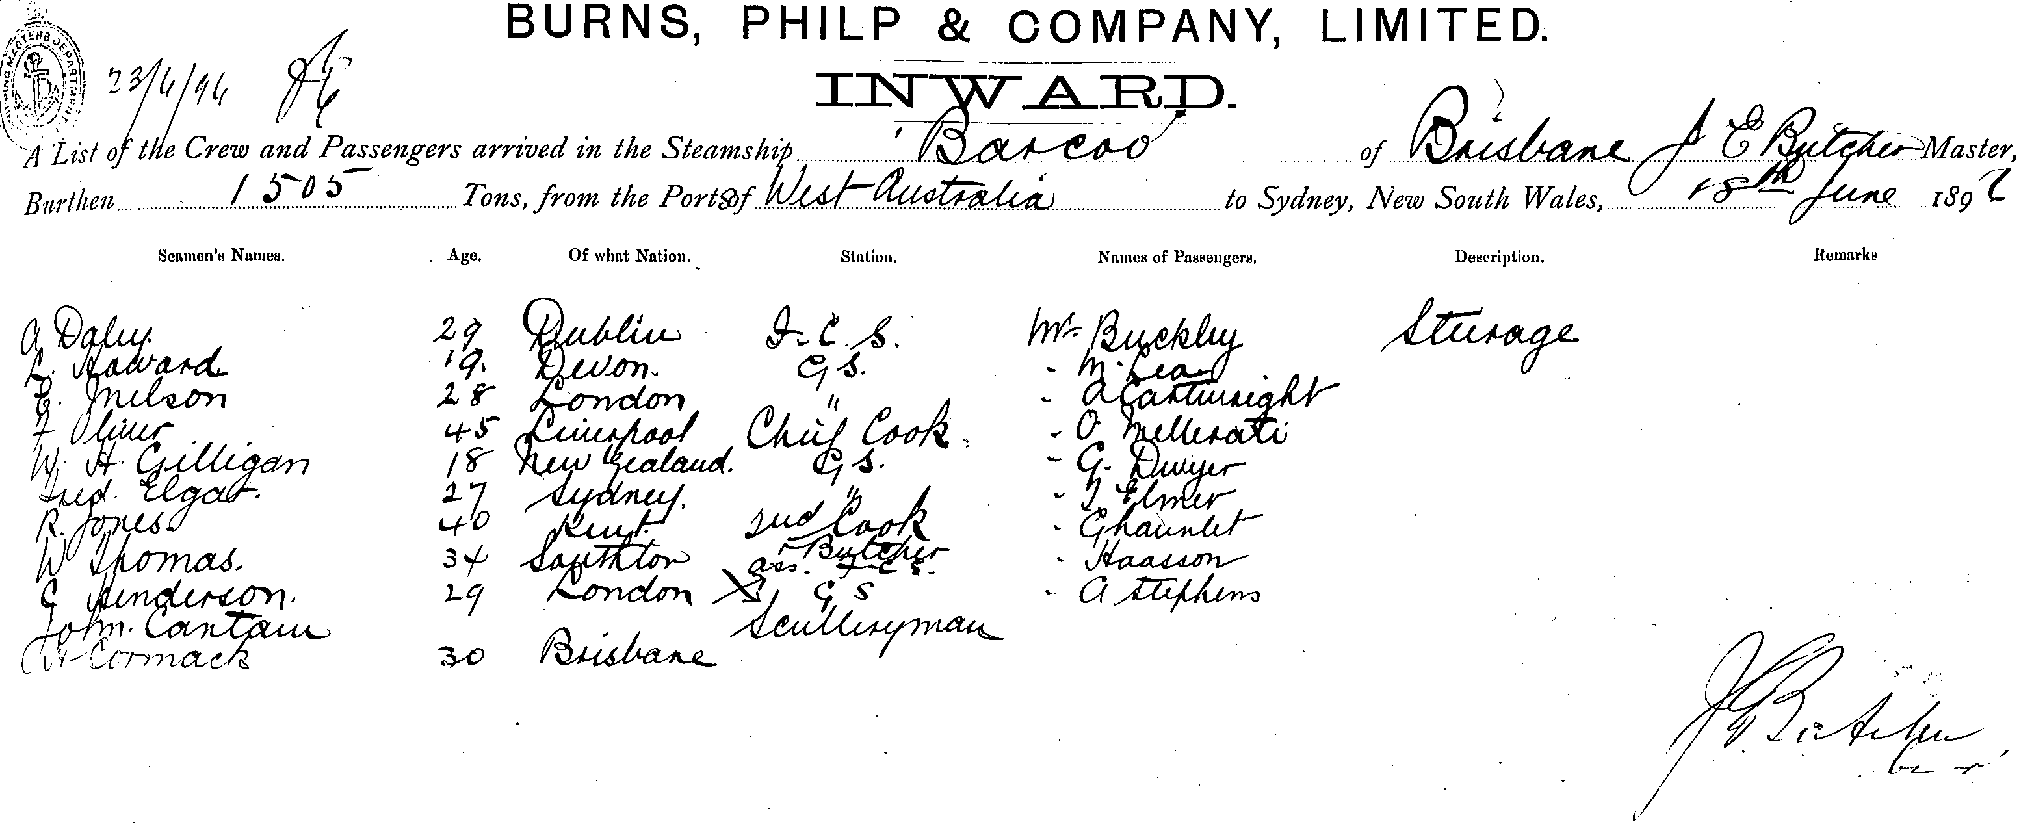 BURNS, PHILP & COMPANY, LIMITED.
INWARD.
23/6/96
A List of the Crew and Passengers arrived in the Steamship "Barcoo" of Brisbane J E Butcher Master,
Burthen 1505 Tons, from the Ports of West Australia to Sydney, New South Wales, 18th June 1896
Seamen's Names. Age. Of what Nation. Station. Names of Passengers. Description. Remarks
A Daley. 29 Dublin F. C. S. Mr Buckley Sturage
L. Howard 19. Devon. G S. " McLean
E. Nielson 28 London " " A Cartwright
F Oliver 45 Liverpool Chief Cook. " O Mellerati
W. H. Gilligan 18 New Zealand. G S. " G. Dwyer
Fred. Elgar. 27 Sydney. " " T Elmer
R. Jones. 40 Kent. 2nd Cook " Ghaunlet
W Thomas. 34 Southton ass. Butcher " Haasson
G Henderson. 29 London X G S " A Stephens
John. Cantain Sculleryman
Cormack 30 Brisbane
J E Butcher